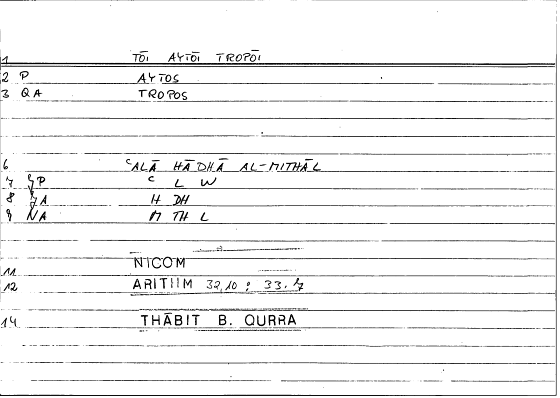 1 TŌI AYTŌI TROPŌI
2 P AYTOS
3 QA TROPOS
6 ʿALĀ HĀDHĀ AL-MITHĀL
7 P ʿ L W
8 A H DH
9 NA M TH L
11 NICOM
12 ARITIIM 32,10 ; 33.7
14 THĀBIT B. QURRA